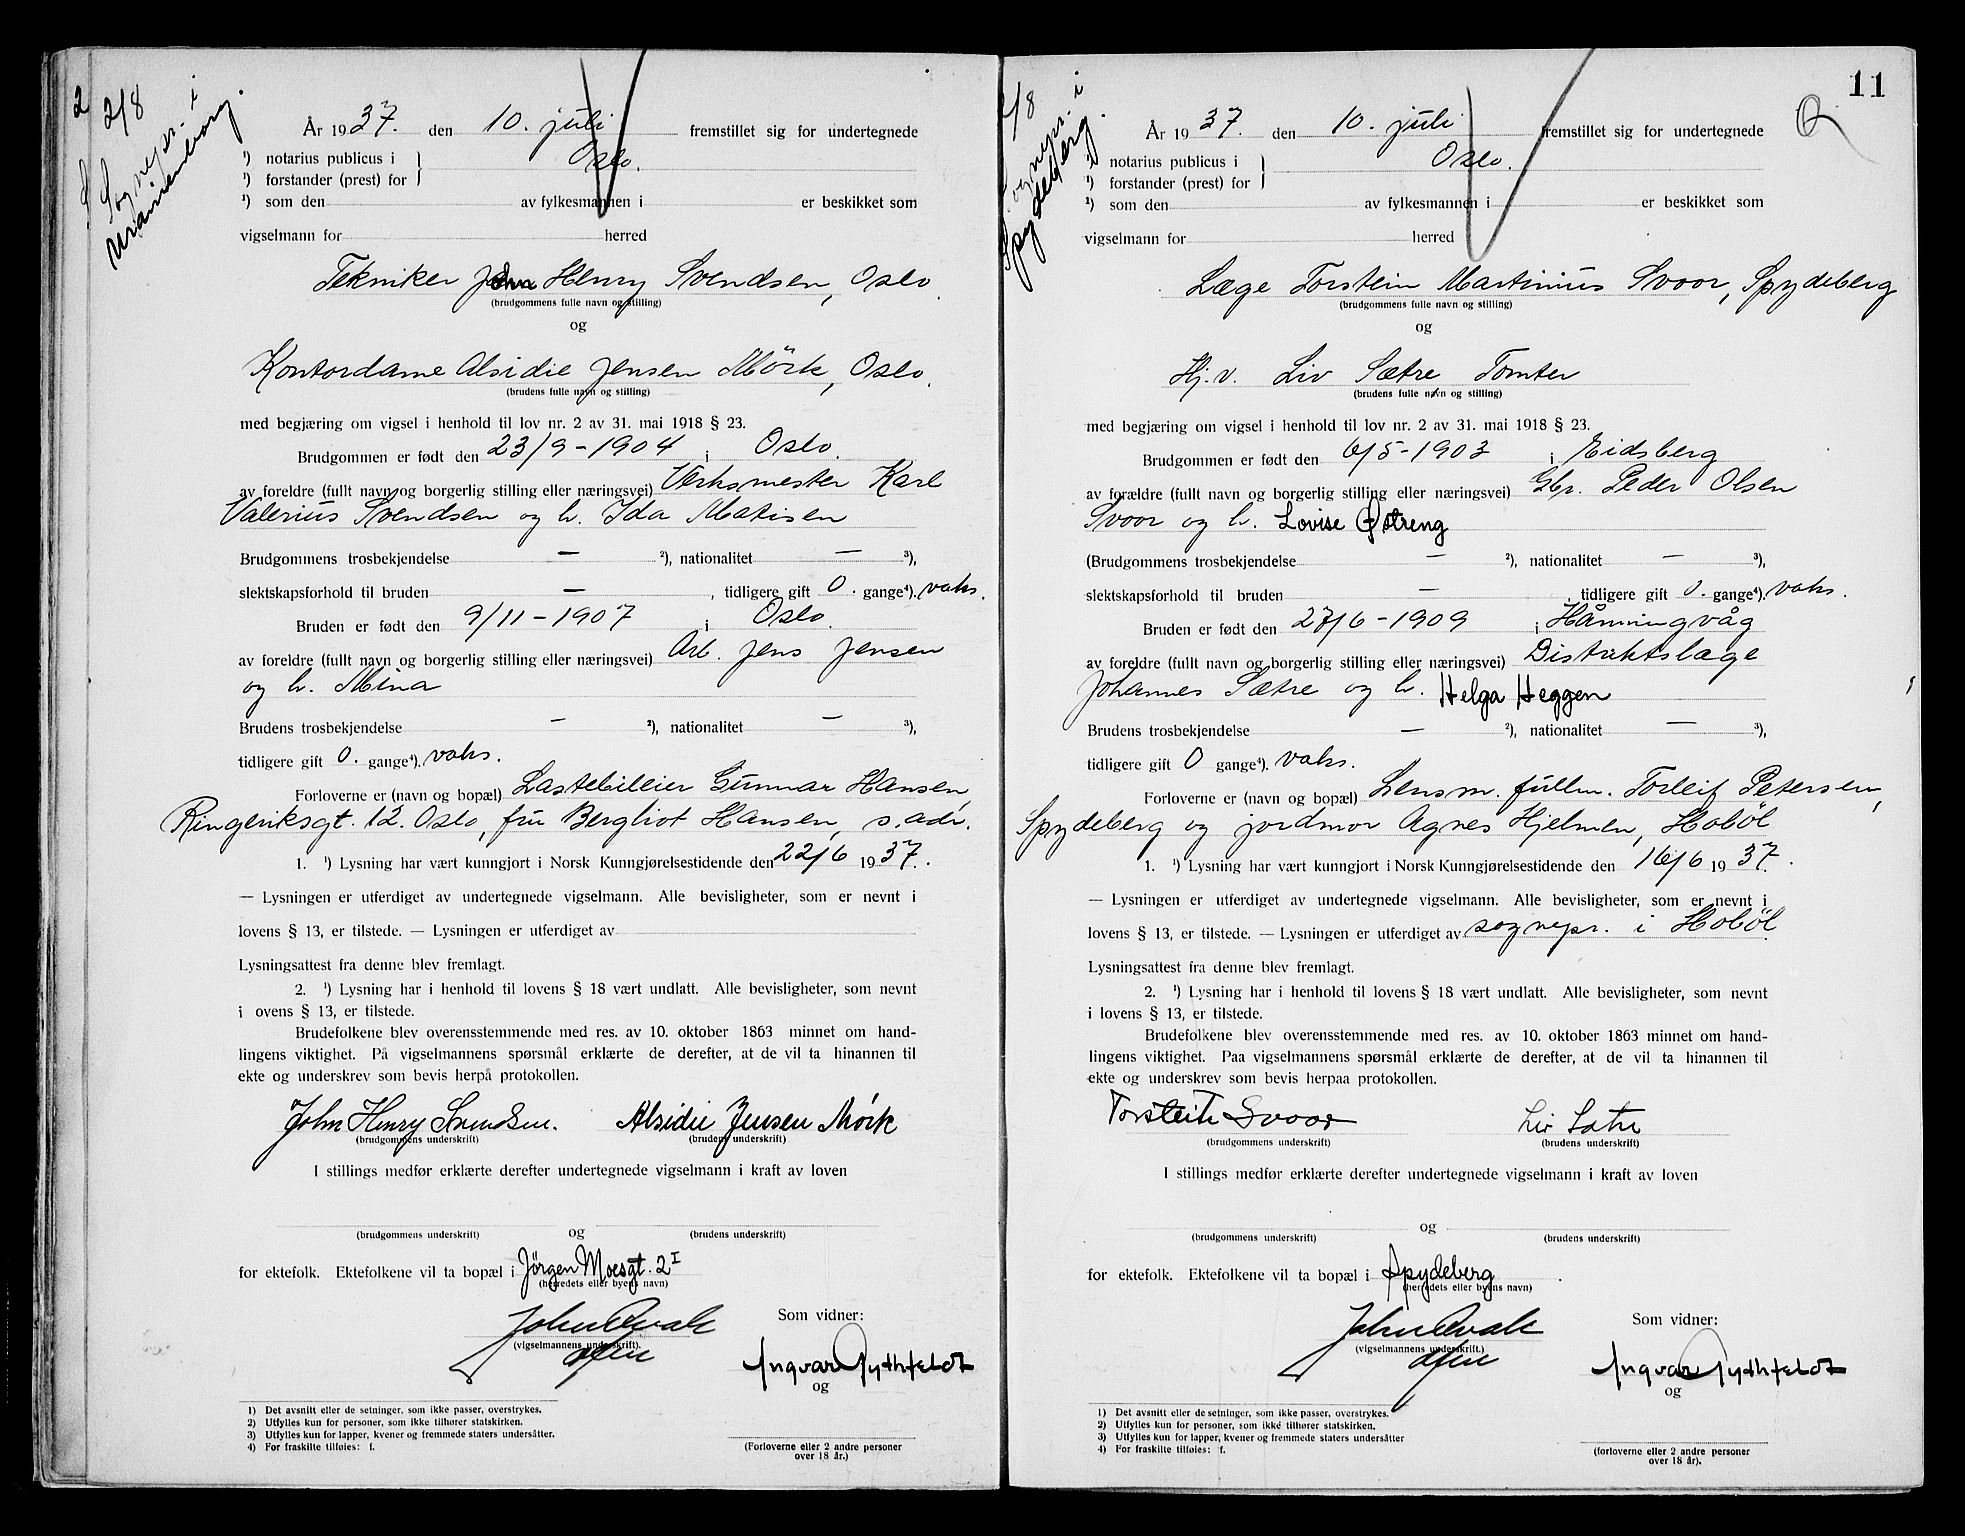 2
2/8
Sognepr. i
Uranienborg.
År 1937. den 10. juli fremstillet sig for undertegnede
¹) notarius publicus i } Oslo.
¹) forstander (prest) for
¹) som den av fylkesmannen i er beskikket som
vigselmann for herred
Tekniker John Henry Svendsen, Oslo.
(brudgommens fulle navn og stilling)
og
Kontordame Alsidie Jensen Mörk, Oslo.
(brudens fulle navn og stilling)
med begjæring om vigsel i henhold til lov nr. 2 av 31. mai 1918 § 23.
Brudgommen er født den 23/9-1904 i Oslo.
av foreldre (fullt navn og borgerlig stilling eller næringsvei) Verksmester Karl
Valerius Svendsen og h. Ida Matisen
Brudgommens trosbekjendelse — ²), nationalitet — ³),
slektskapsforhold til bruden — , tidligere gift 0. gange⁴). vaks.
Bruden er født den 9/11-1907 i Oslo.
av foreldre (fullt navn og borgerlig stilling eller næringsvei) Arb. Jens Jensen
og h. Mina
Brudens trosbekjendelse — ²), nationalitet — ³),
tidligere gift 0. gange⁴). vaks.
Forloverne er (navn og bopæl) Lastebileier Gunnar Hansen,
Ringeriksgt. 12. Oslo, fru Bergliot Hansen, s. adr.
1. ¹) Lysning har vært kunngjort i Norsk Kunngjørelsestidende den 22/6 1937.
— Lysningen er utferdiget av undertegnede vigselmann. Alle bevisligheter, som er nevnt i
lovens § 13, er tilstede. — Lysningen er utferdiget av
Lysningsattest fra denne blev fremlagt.
2. ¹) Lysning har i henhold til lovens § 18 vært undlatt. Alle bevisligheter, som nevnt
i ovens § 13, er tilstede.
Brudefolkene blev overensstemmende med res. av 10. oktober 1863 minnet om hand-
lingens viktighet. På vigselmannens spørsmål erklærte de derefter, at de vil ta hinannen til
ekte og underskrev som bevis herpå protokollen.
John Henry Svendsen. Alsidie Jensen Mørk
(brudgommens underskrift) (brudens underskrift)
I stillings medfør erklærte derefter undertegnede vigselmann i kraft av loven
og
(brudgommens underskrift) (brudens underskrift)
for ektefolk. Ektefolkene vil ta bopæl i Jörgen Moesgt. 2 I
(herredets eller byens navn)
Som vidner:
(vigselmannens underskrift).
Ingvar
og
1) Det avsnitt eller de setninger, som ikke passer, overstrykes.
2) Utfylles kun for personer, som ikke tilhører statskirken.
3) Utfylles kun for lapper, kvener og fremmede staters undersåtter.
4) For fraskilte tilføies: f.
(Forloverne eller 2 andre personer
over 18 år.)
11
/8
ognepr. i
Spydeberg.
År 1937. den 10. juli fremstillet sig for undertegnede
¹) notarius publicus i } Oslo.
¹) forstander (prest) for
²) som den av fylkesmannen i er beskikket som
vigselmann for herred
Læge Torstein Martinius Svoor, Spydeberg
(brudgommens fulle navn og stilling)
og
Hj.v. Liv Sætre Tomter
(brudens fulle navn og stilling)
med begjæring om vigsel i henhold til lov nr. 2 av 31. mai 1918 § 23.
Brudgommen er født den 6/5-1903 i Eidsberg
av forældre (fullt navn og borgerlig stilling eller næringsvei) Gbr. Peder Olsen
Svoor og h. Lovise Østreng
(Brudgommens trosbekjendelse — ²), nationalitet — ³),
slektskapsforhold til bruden — , tidligere gift 0. gange⁴). vaks.
Bruden er født den 27/6-1909 i Hånningvåg
av foreldre (fullt navn og borgerlig stilling eller næringsvei) Distriktslæge
Johannes Sætre og h. Helga Heggen
Brudens trosbekjendelse — ²), nationalitet — ³),
tidligere gift 0 gange⁴). vaks.
Forloverne er (navn og bopæl) Lensm. fullm. Torleif Petersen,
Spydeberg og jordmor Agnes Hjelmen, Hoböl
1. ¹) Lysning har vært kunngjort i Norsk Kunngjørelsestidende den 16/6 1937.
— Lysningen er utferdiget av undertegnede vigselmann. Alle bevisligheter, som er nevnt i
lovens § 13, er tilstede. — Lysningen er utferdiget av sognepr. i Hoböl
Lysningsattest fra denne blev fremlagt.
2. ¹) Lysning har i henhold til lovens § 18 vært undlatt. Alle bevisligheter, som nevnt
i lovens § 13, er tilstede.
Brudefolkene blev overensstemmende med res. av 10. oktober 1863 minnet om hand-
lingens viktighet. Paa vigselmannens spørsmål erklærte de derefter, at de vil ta hinannen til
ekte og underskrev som bevis herpaa protokollen.
Torstein Svoor Liv Sætre
(brudgommens underskrift) (brudens underskrift)
I stillings medfør erklærte derefter undertegnede vigselmann i kraft av loven
og
(brudgommens underskrift) (brudens underskrift)
for ektefolk. Ektefolkene vil ta bopæl i Spydeberg .
(herredets eller byens navn)
Som vidner:
(vigselmannens underskrift.)
Ingvar
og
1) Det avsnitt eller de setninger, som ikke passer, overstrykes.
2) Utfylles kun for personer, som ikke tilhører statskirken.
3) Utfylles kun for lapper, kvener og fremmede staters undersåtter
4) For fraskilte tilføies: f.
(forloverne eller 2 andre personer
over 18 år).